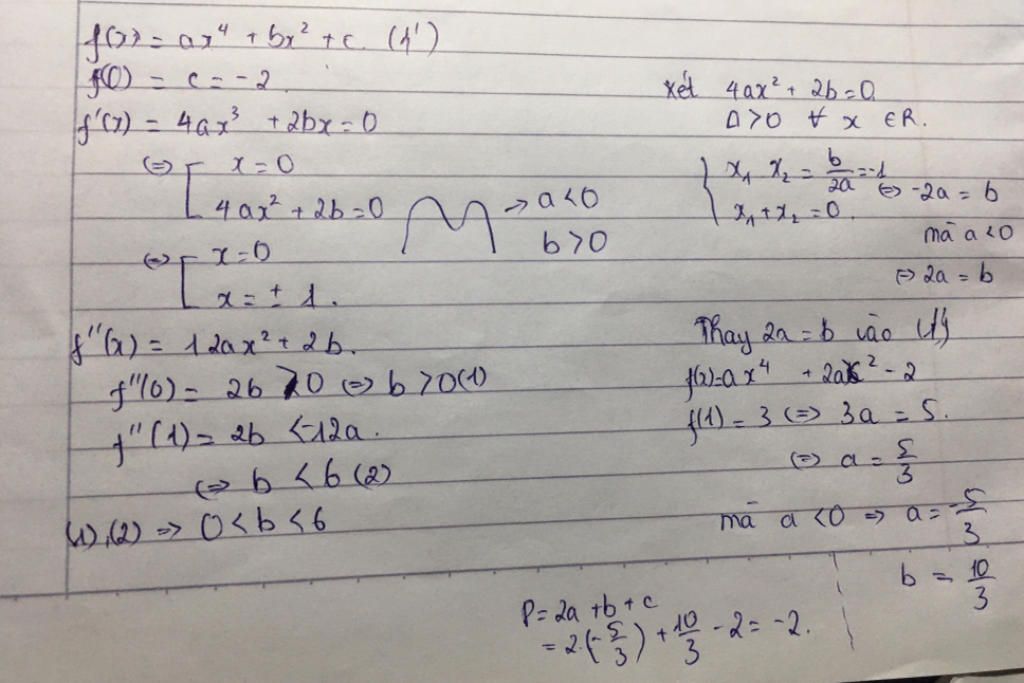 f(x) = ax⁴ + bx² + c. (1')
f(0) = c = -2.
f'(x) = 4ax³ + 2bx = 0
⇔ [ x = 0
4ax² + 2b = 0 → a < 0
b > 0
⇔ [ x = 0
x = ± 1.
f''(x) = 12ax² + 2b.
f''(0) = 2b > 0 ⇔ b > 0 (1)
f''(1) = 2b < -12a.
⇔ b < 6 (2)
(1),(2) ⇒ 0 < b < 6
Xét 4ax² + 2b = 0
Δ > 0 ∀ x ∈ R.
{ x₁ x₂ = b/2a = -1 ⇔ -2a = b
x₁ + x₂ = 0.
mà a < 0
⇔ 2a = b
Thay 2a = b vào (1')
f(x) = ax⁴ + 2ax² - 2
f(1) = 3 ⇔ 3a = 5.
⇔ a = 5/3
mà a < 0 ⇒ a = -5/3
b = 10/3
P = 2a + b + c
= 2.(-5/3) + 10/3 - 2 = -2.